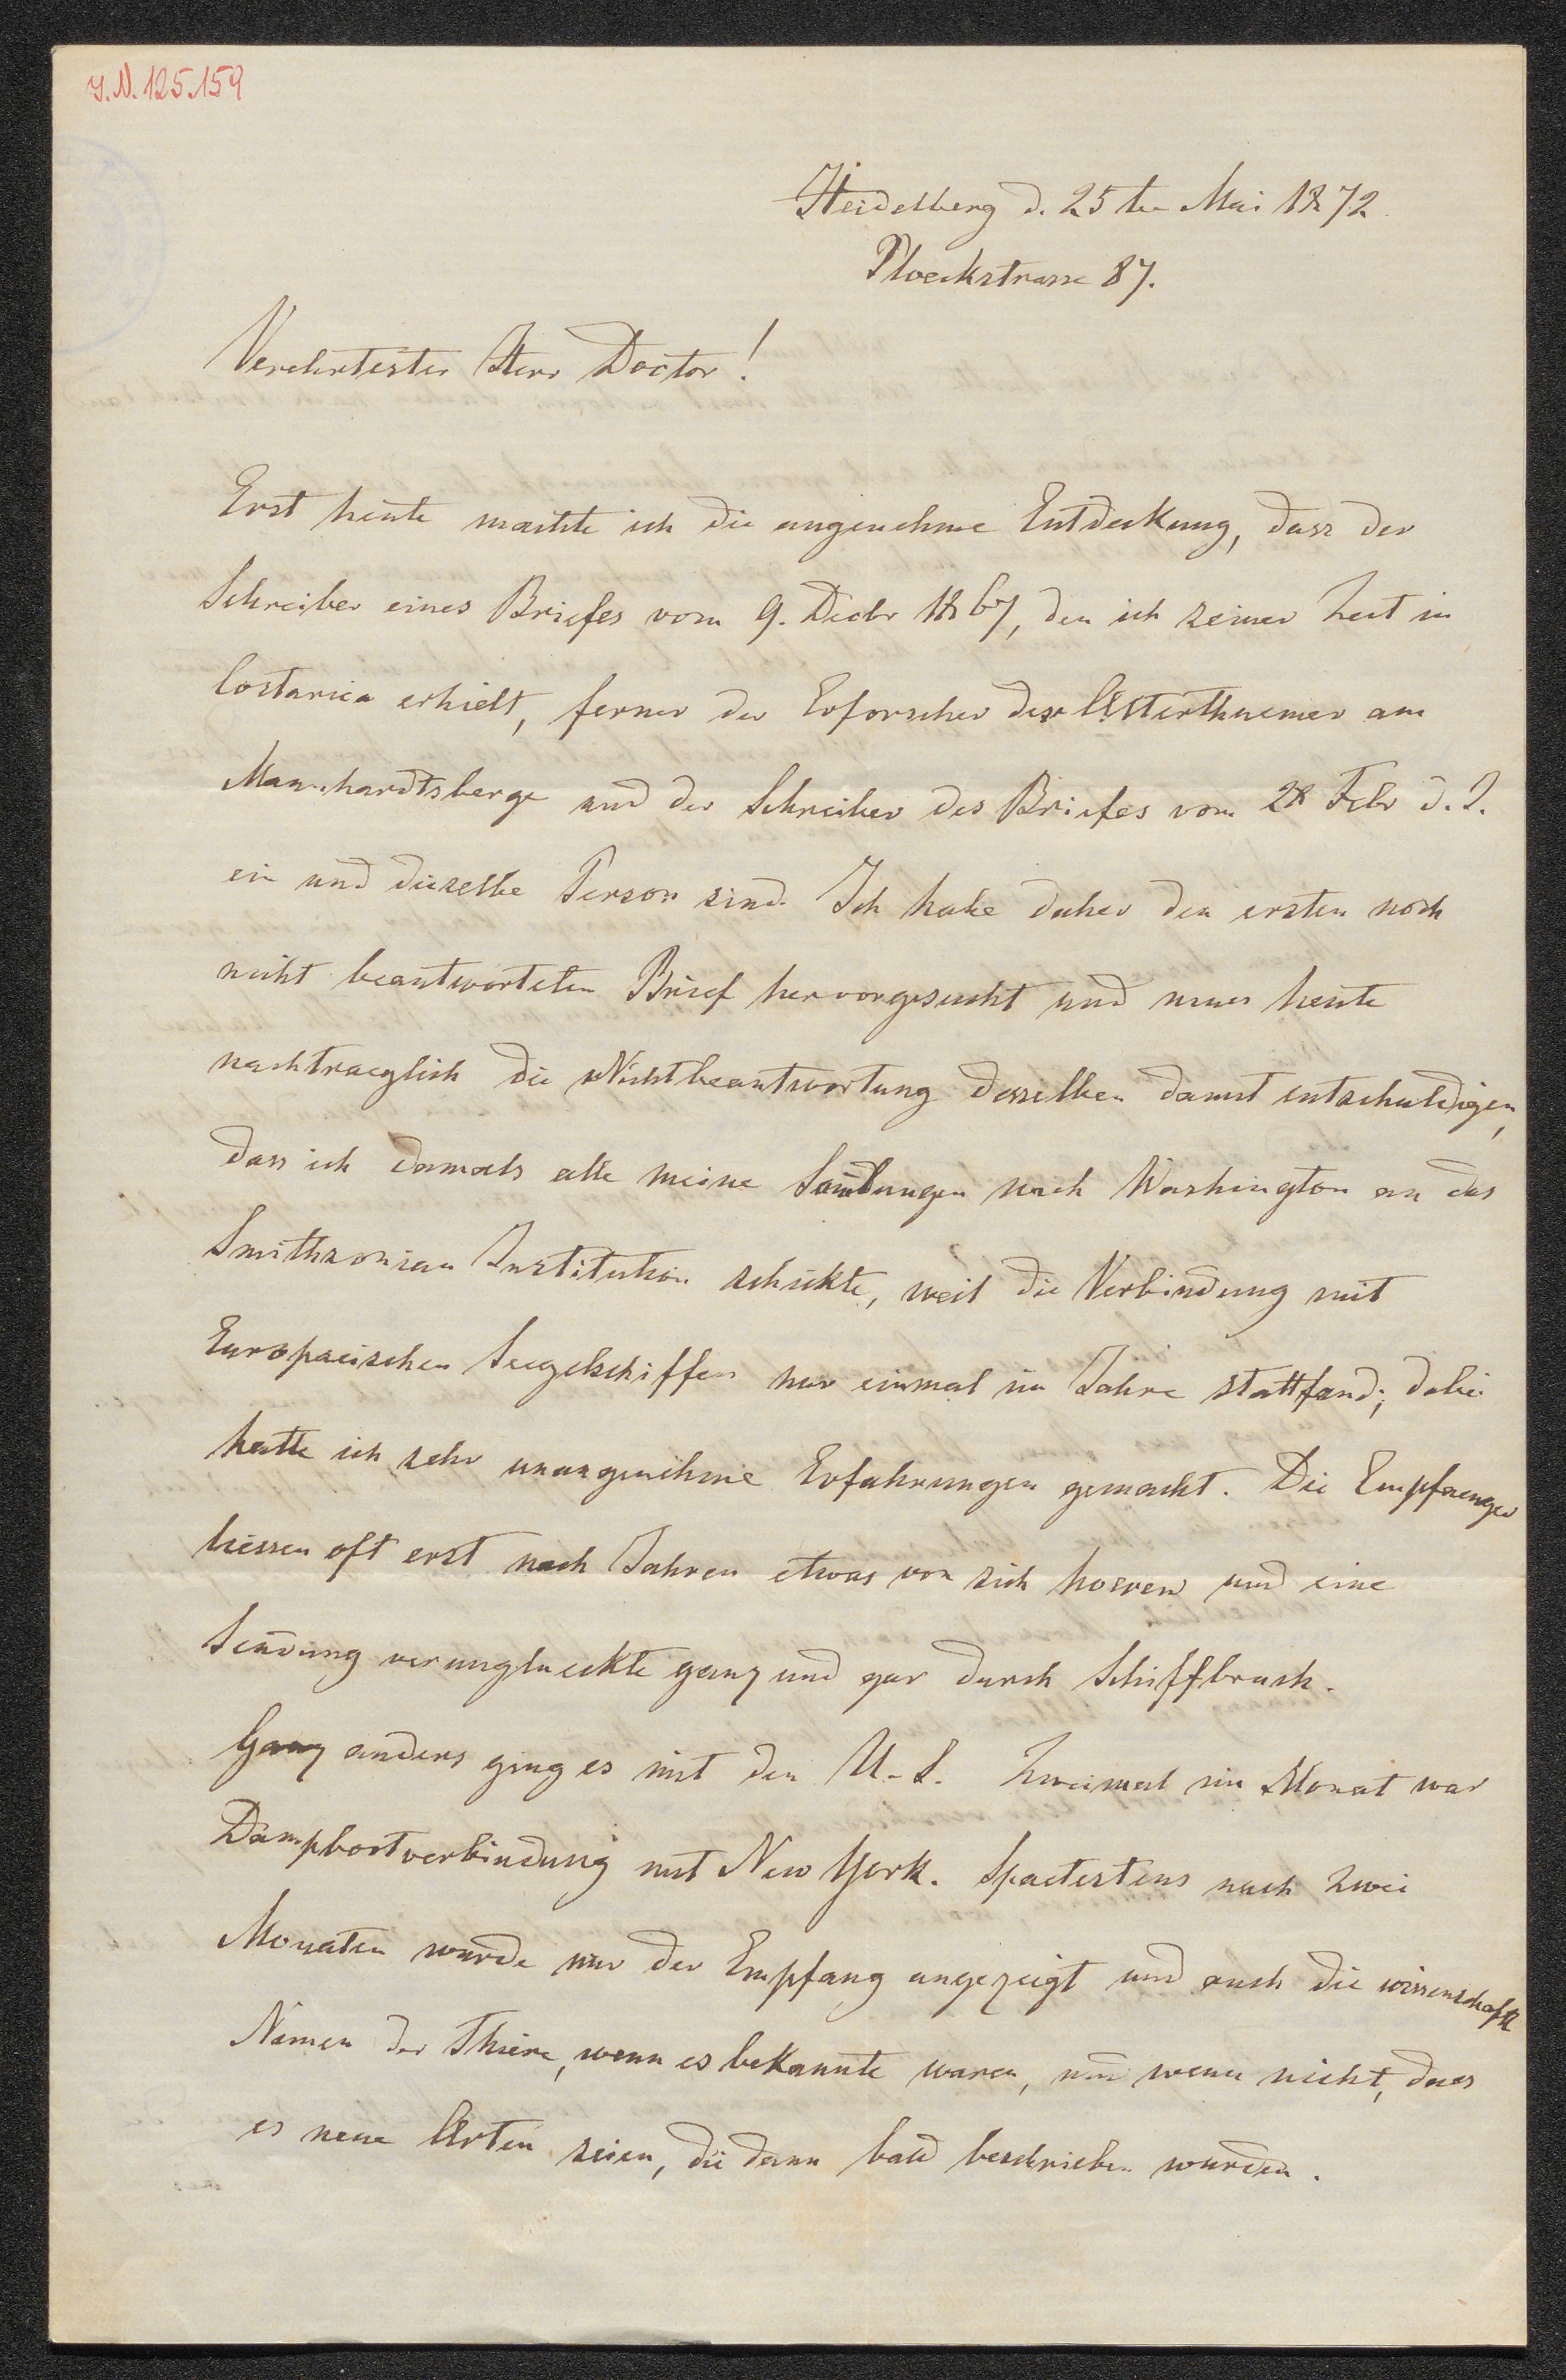 I.N. 125.159
Heidelberg d. 25ten Mai 1872
Ploeckstrasse 87.
Verehrtester Herr Doctor!
Erst heute machte ich die angenehme Entdeckung, dass der
Schreiber eines Briefes vom 9. Decbr 1867, den ich seiner Zeit in
Costarica erhielt, ferner der Erforscher der Alterthuemer am
Mannhardtsberge und der Schreiber des Briefes vom 28 Febr d. J.
ein und dieselbe Person sind. Ich habe daher den ersten noch
nicht beantworteten Brief hervorgesucht und muss heute
nachtraeglich die Nichtbeantwortung desselben damit entschuldigen,
dass ich damals alle meine Samlungen nach Washington an das
Smithsonian Institution schickte, weil die Verbindung mit
Europaeischen Seegelschiffen nur einmal im Jahre stattfand; dabei
hatte ich sehr unangenehme Erfahrungen gemacht. Die Empfaenger
liessen oft erst nach Jahren etwas von sich hoeren und eine
Sendung verunglueckte ganz und gar durch Schiffbruch.
Ganz anders ging es mit den U.S. Zweimal im Monat war
Dampbootverbindung mit New York. Spaetestens nach zwei
Monaten wurde mir der Empfang angezeigt und auch die wissenschaftl
Namen der Thiere, wenn es bekannte waren, und wenn nicht, dass
es neue Arten seien, die dann bald beschrieben wurden.